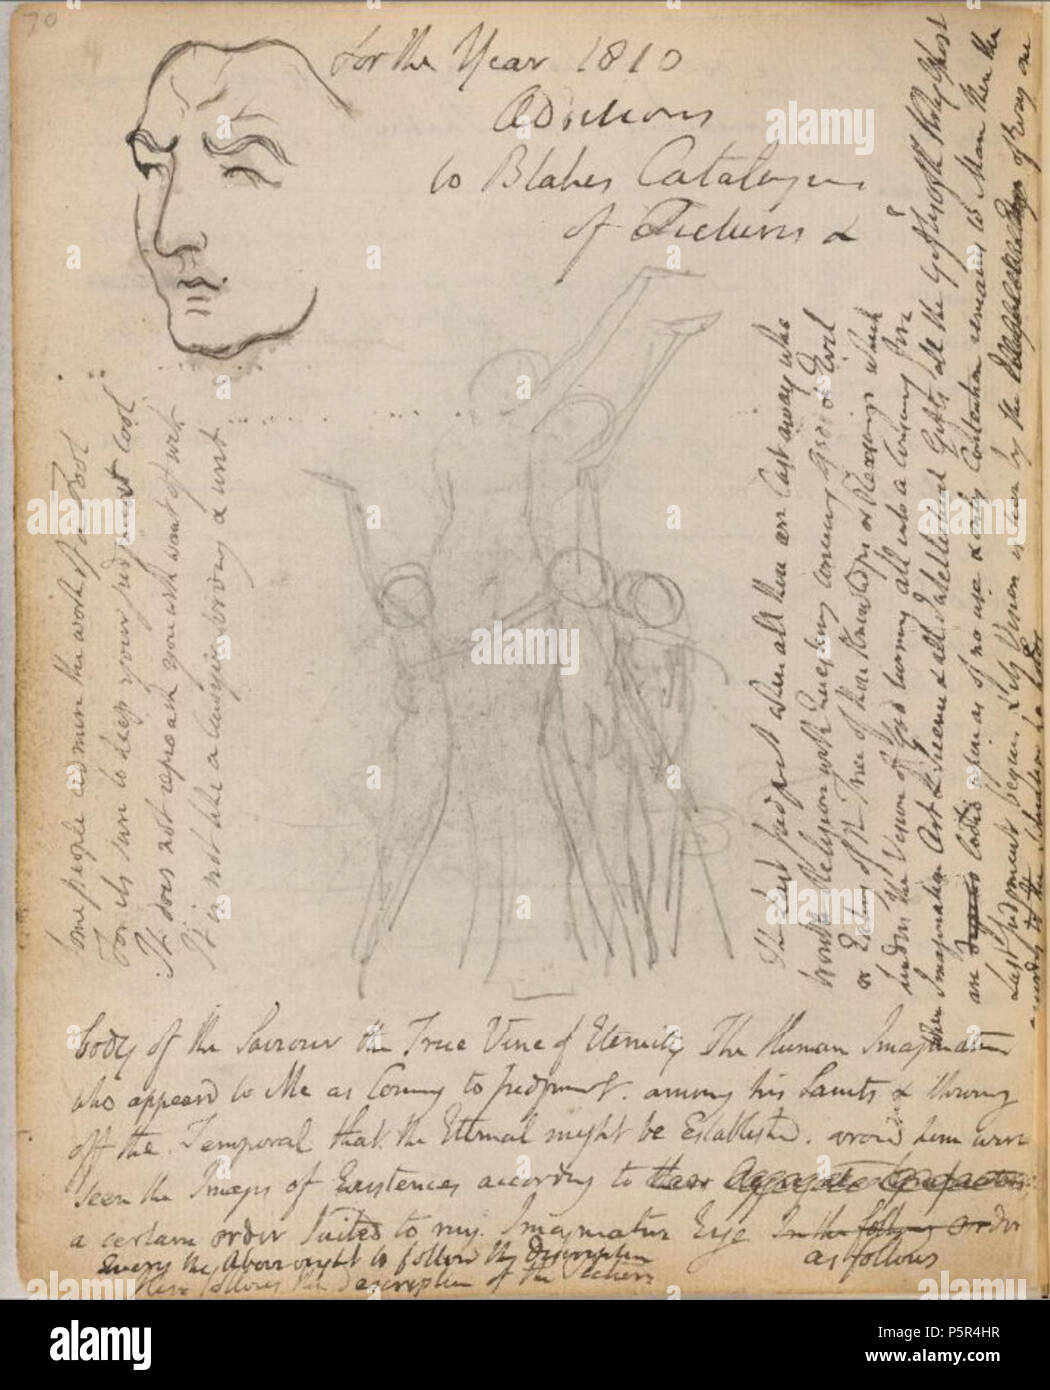 70
For the Year 1810
Additions
to Blakes Catalogue
of Pictures &
Some people admire the work of a Fool
For its sure to keep your judgment cool
It does not reproach you with want of wit
It is not like a lawyer serving a writ
The Last Judgment when all those are Cast away who
trouble Religion with Questions concerning Good & Evil
or Eating of the Tree of those Knowledges or Reasonings which
hinder the Vision of God turning all into a Consuming Fire
When Imagination Art & Science & all Intellectual Gifts all the Gifts of the Holy Ghost
are lookd upon as of no use & only Contention remains to Man then the
Last Judgment begins & its Vision is seen by the of Every one
according to the Situation he holds
body of the Saviour the True Vine of Eternity The Human Imagination
who appeard to Me as Coming to Judgment. among his Saints & throwing
off the Temporal that the Eternal might be Establishd. around him were
seen the Images of Existences according to
a certain order Suited to my Imaginative Eye In the following order
as follows
Query the Above ought to follow the description
Here follows the description of the Picture
alamy
a
alamy
Image ID: P5R4HR
www.alamy.com